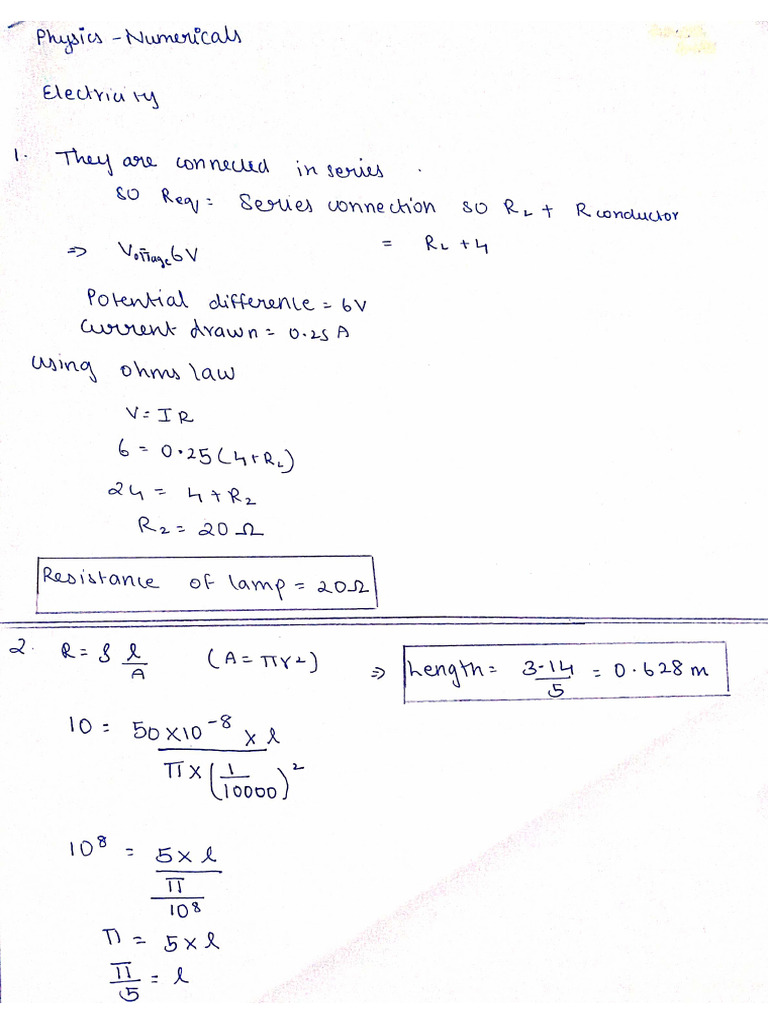 Physics - Numericals
Electricity
1. They are connected in series.
SO Req = Series connection so RL + R conductor
= RL + 4
⇒ Voltage 6V
Potential difference = 6V
Current drawn = 0.25 A
using ohms law
V = IR
6 = 0.25(4+RL)
24 = 4 + R2
R2 = 20 Ω
Resistance of lamp = 20Ω
2. R = ρ l/A (A = πr²)
10 = 50×10⁻⁸ × l / π × (1/10000)²
10⁸ = 5 × l / π / 10⁸
π = 5 × l
π/5 = l
⇒ Length = 3.14/5 = 0.628 m